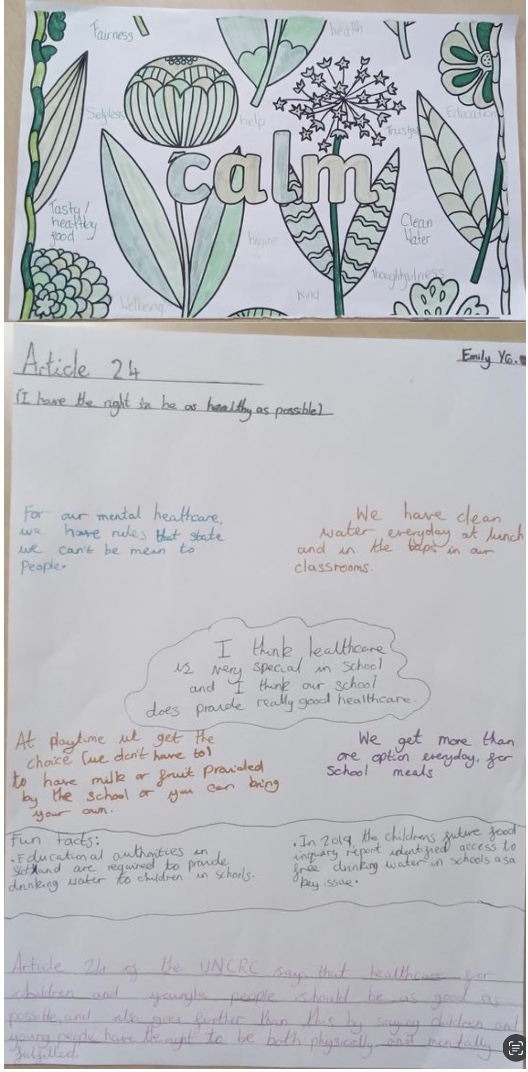 Fairness
health
Selfless
help
Trusted
Education
calm
Tasty/
healthy
food
Clean
Water
hygine
thoughtfulness
Kind
Wellbeing
Article 24
Emily Y6.
(I have the right to be as healthy as possible)
For our mental healthcare,
we have rules that state
we can't be mean to
People.
We have clean
water everyday at lunch
and in the taps in our
classrooms.
I think healthcare
is very special in school
and I think our school
does provide really good healthcare.
At playtime we get the
choice (we don't have to)
to have milk or fruit provided
by the school or you can bring
your own.
We get more than
one option everyday, for
school meals
Fun facts:
• Educational authorities in
Scotland are required to provide
drinking water to children in schools.
• In 2019 the childrens future food
inquiry report identified access to
free drinking water in schools as a
key issue.
Article 24 of the UNCRC says that healthcare for
children and people should be as good as
possible, and also goes further than this by saying children and
young people have the right to be both physically and mentally
fulfilled.